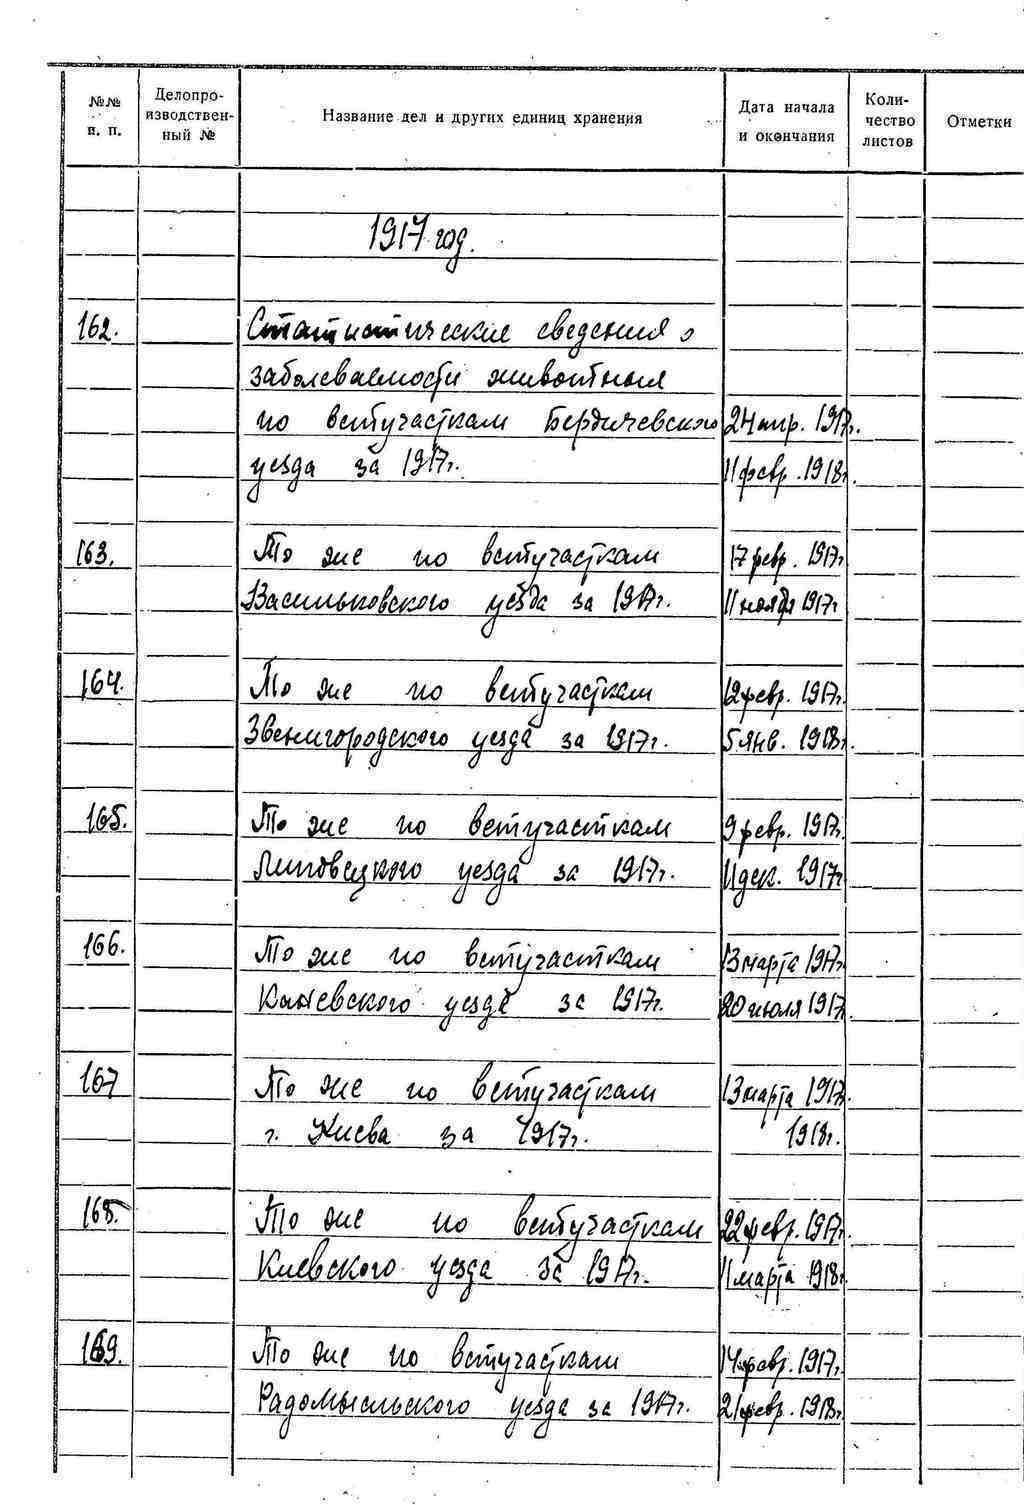 №№ п. п.
Делопроизводственный №
Название дел и других единиц хранения
Дата начала и окончания
Количество листов
Отметки
1917 год.
162. Статистические сведения о
заболеваемости животных
по ветучасткам Бердичевского 24 апр. 1917г.
уезда за 1917г. 11 февр. 1918г.
163. То же по ветучасткам 17 февр. 1917г.
Васильковского уезда за 1917г. 11 ноября 1917г.
164. То же по ветучасткам 12 февр. 1917г.
Звенигородского уезда за 1917г. 5 янв. 1918г.
165. То же по ветучасткам 9 февр. 1917г.
Липовецкого уезда за 1917г. 11 дек. 1917г.
166. То же по ветучасткам 13 марта 1917г.
Каневского уезда за 1917г. 20 июля 1917г.
167 То же по ветучасткам 13 марта 1917г.
г. Киева за 1917г. 1918г.
168. То же по ветучасткам 22 февр. 1917г.
Киевского уезда за 1917г. 11 марта 1918г.
169. То же по ветучасткам 14 февр. 1917г.
Радомысльского уезда за 1917г. 21 февр. 1918г.